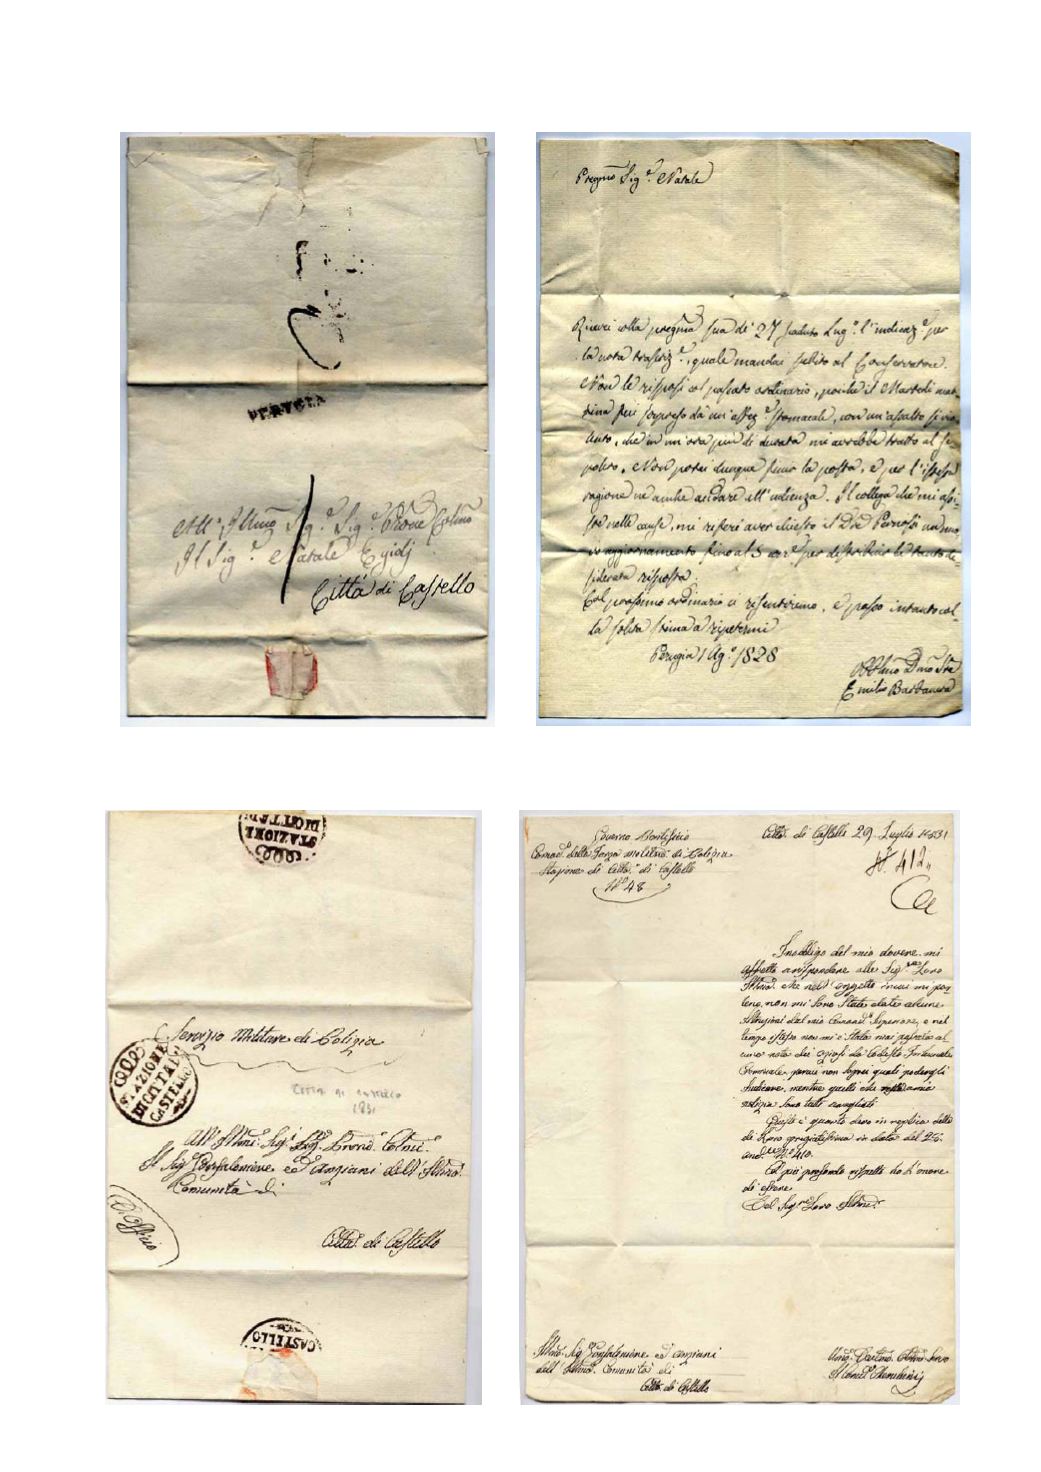 PERUGIA
All' Illmo Sig.e Sig.e Prone Colmo
Il Sig.e Natale Egidj
Città di Castello
Pregmo Sig.e Natale
Ricevei colla pregma sua de' 27 scaduto Lug.o l'indicaz.e per
la nota trasferz.e, quale mandai subito al Conservatore.
Non le risposi col passato ordinario, poiché il Martedì mat-
tina fui sorpreso da un' affez.e stomacale, con un assalto sì vio-
lento, che in un' ora più di durata mi avrebbe tratto al se-
polcro. Non potei dunque fino la posta, e per l'istessa
ragione nè anche andare all' udienza. Il collega che mi assi-
ste nelle cause, mi riferì aver chiesto il Dre un nuo-
vo aggiornamento fino al 5 corr.e per distribuir la tanto de-
siderata risposta.
Col prossimo ordinario ci risentiremo, e passo intanto col-
la solita stima a ripetermi
Perugia 1 Ag.o 1828
Obblmo Dmo Sre
Emilio Barbanera
STAZIONE
DI CITTA DI
Servizio Militare di Polizia
STAZIONE
DI CITTA DI
CASTELLO
Città di Castello
1831
All' Illmi Sig.i Sig.i Proni Colmi
Il Sig. Gonfaloniere ed Anziani dell' Illma
Comunità di
D'Officio
Città di Castello
CASTELLO
Governo Pontificio
Comando della Forza militare di Polizia
Stazione di Città di Castello
N.o 48
Città di Castello 29 Luglio 1831
N. 412
In obbligo del mio dovere mi
affretto a rispondere alle Sig.rie Loro
Illme che nell' oggetto in cui mi par-
lano, non mi sono state date alcune
istruzioni dal mio Comand.e Superiore, e nel
tempo stesso non mi è stata mai passata al-
cuna nota dei da codesto Tribunale
Criminale, perciò non saprei quali potergli
indicare, mentre quelli che a mia
notizia sono tutti
Questo è quanto devo in replica della
di Loro pregiatissima in data del 28
and.e N.o 410.
Col più profondo rispetto ho l'onore
di essere
Del Sig.ri Loro Illmi
Illmo Sig. Gonfaloniere ed Anziani
dell' Illma Comunità di
Città di Castello
Umo Devmo Obbmo Servo